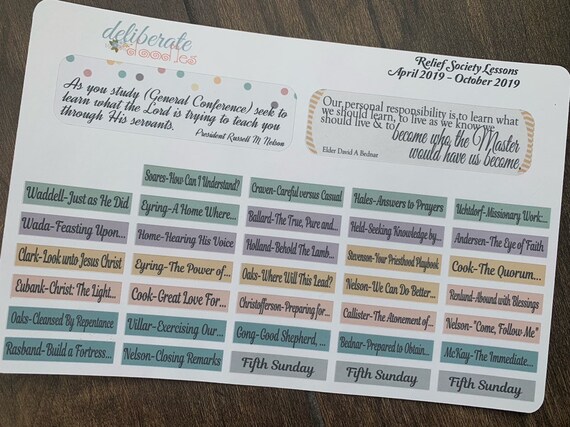 deliberate
doodles
Relief Society Lessons
April 2019 - October 2019
As you study (General Conference) seek to
learn what the Lord is trying to teach you
through His servants.
President Russell M. Nelson
Our personal responsibility is to learn what
we should learn, to live as we know we
should live & to
become who the Master
would have us become.
Elder David A Bednar
Waddell-Just as He Did
Wada-Feasting Upon...
Clark-Look unto Jesus Christ
Eubank-Christ: The Light...
Oaks-Cleansed By Repentance
Rasband-Build a Fortress...
Soares-How Can I Understand?
Eyring-A Home Where...
Home-Hearing His Voice
Eyring-The Power of...
Cook-Great Love For...
Villar-Exercising Our...
Nelson-Closing Remarks
Craven-Careful versus Casual
Ballard-The True, Pure and...
Holland-Behold The Lamb...
Oaks-Where Will This Lead?
Christofferson-Preparing for...
Gong-Good Shepherd, ...
Fifth Sunday
Hales-Answers to Prayers
Held-Seeking Knowledge by...
Stevenson-Your Priesthood Playbook
Nelson-We Can Do Better...
Callister-The Atonement of...
Bednar-Prepared to Obtain...
Fifth Sunday
Uchtdorf-Missionary Work:..
Andersen-The Eye of Faith
Cook-The Quorum...
Renlund-Abound with Blessings
Nelson-"Come, Follow Me"
McKay-The Immediate...
Fifth Sunday